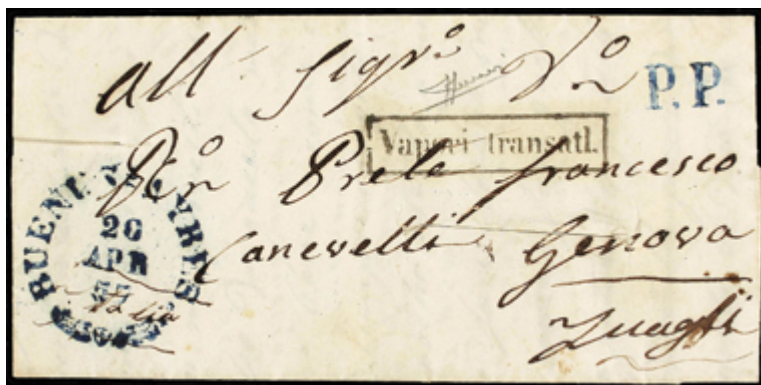 All Sigre
P.P.
Vapori transatl.
Prete francesco
Canevelli Genova
Zuagli
BUENOS AYRES
20
APR
Italia